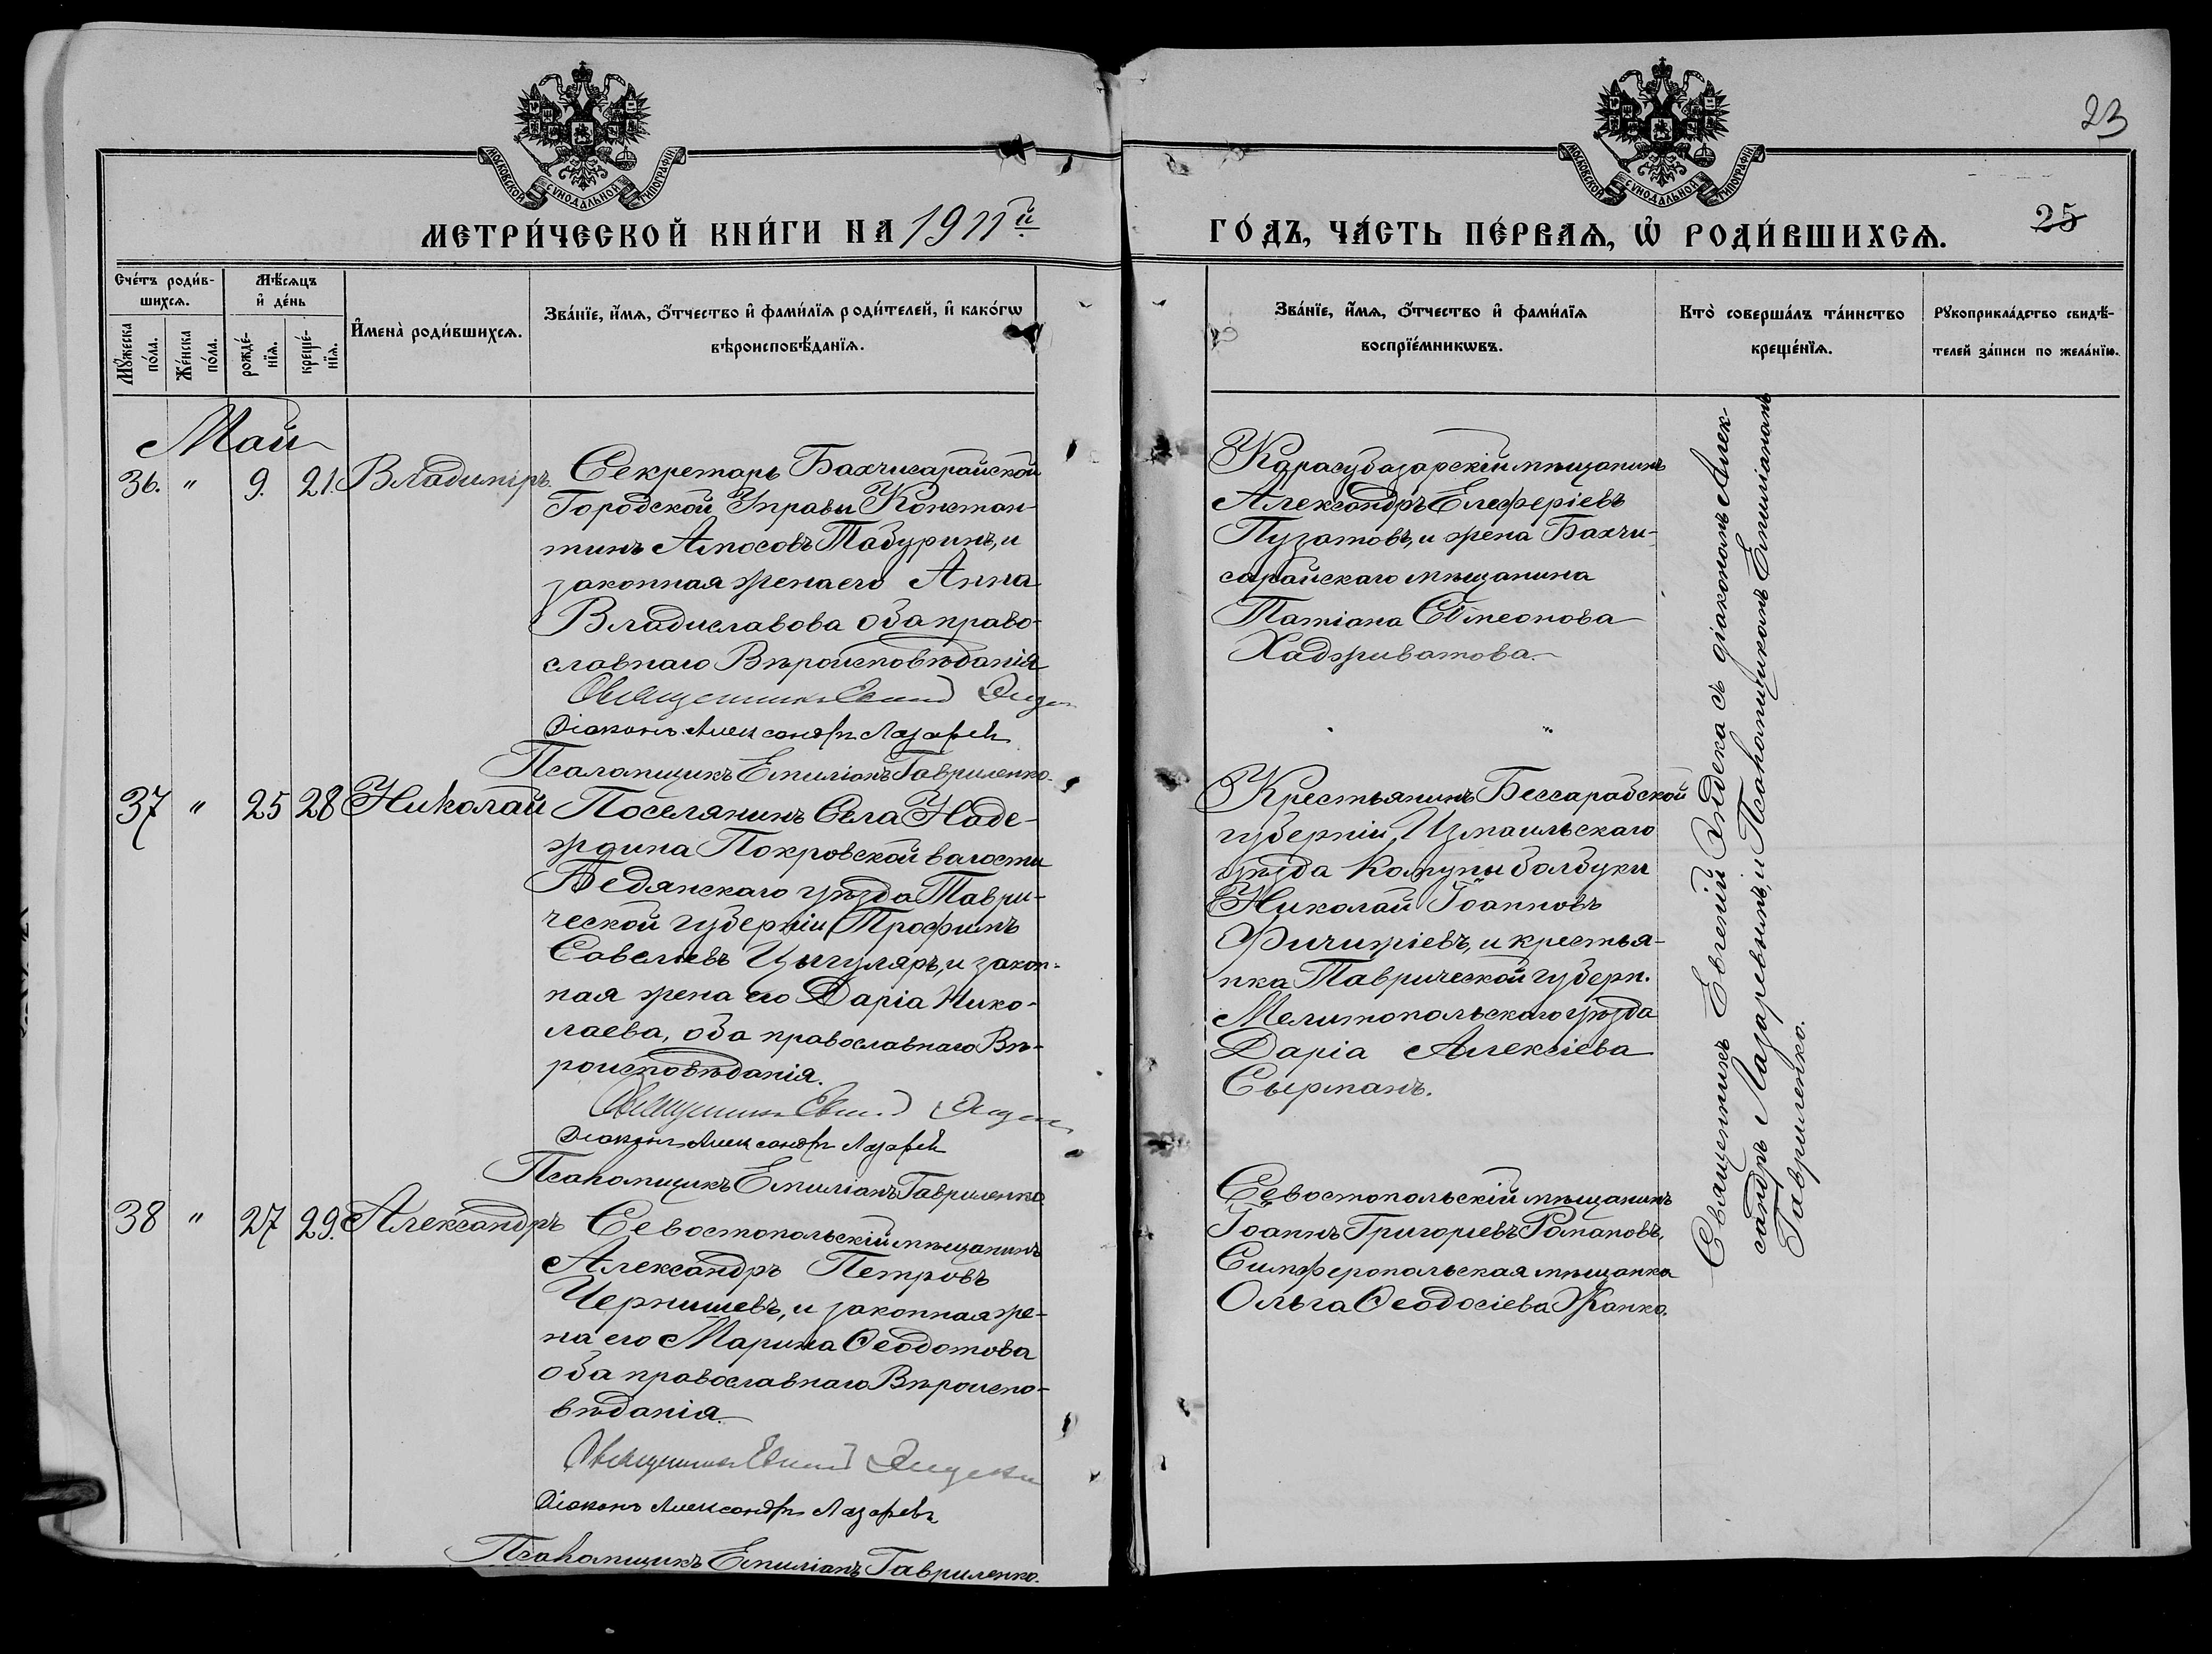 23
МОСКОВСКОЙ СѴНОДАЛЬНОЙ ТИПОГРАФІИ
МОСКОВСКОЙ СѴНОДАЛЬНОЙ ТИПОГРАФІИ
МЕТРИ́ЧЕСКОЙ КНИ́ГИ НА 1911й
ГО́ДЪ, ЧА́СТЬ ПЕ́РВАѦ, Ѡ҆ РОДИ́ВШИХСѦ.
25
Сче́тъ роди́в-
шихсѧ.
Мꙋ́жеска
по́ла.
Же́нска
по́ла.
Мѣ́сѧцъ
и҆ де́нь
рожде́-
нїѧ.
креще́-
нїѧ.
И҆мена̀ роди́вшихсѧ.
Зва́нїе, и҆́мѧ, ѻ҆́тчество и҆ фами́лїѧ роди́телей, и҆ како́гѡ
вѣроисповѣ́данїѧ.
Зва́нїе, и҆́мѧ, ѻ҆́тчество и҆ фами́лїѧ
воспрїе́мникѡвъ.
Кто̀ соверша́лъ та́инство
креще́нїѧ.
Рꙋкоприкла́дство свидѣ́-
телей за́писи по жела́нїю.
Май
36. " 9. 21. Владиміръ
Секретарь Бахчисарайской
Городской Управы Констан-
тинъ Амосовъ Табуринъ, и
законная жена его Анна
Владиславова оба право-
славнаго Вѣроисповѣданія
Священникъ Евгеній Эндека
Діаконъ Александръ Лазаревъ
Псаломщикъ Емиліанъ Гавриленко.
Карасубазарскій мѣщанинъ
Александръ Елеферіевъ
Пузатовъ, и жена Бахчи-
сарайскаго мѣщанина
Татіана Сѵмеонова
Хадживатова.
37 " 25 28 Николай
Поселянинъ Села Наде-
ждина Покровской волости
Бедянскаго уѣзда Таври-
ческой губерніи Трофимъ
Савельевъ Цыгуляръ, и закон-
ная жена его Дарія Нико-
лаева, оба православнаго Вѣ-
роисповѣданія.
Священникъ Евгеній Эндека
Діаконъ Александръ Лазаревъ
Псаломщикъ Емиліанъ Гавриленко
Крестьянинъ Бессарабской
губерніи, Измаильскаго
уѣзда Комуны болбуки
Николай Іоанновъ
и крестья-
нка Таврической губерн.
Мелитопольскаго уѣзда
Дарія Алексіева
Сырманъ.
38 " 27 29. Александръ
Севостопольскій мѣщанинъ
Александръ Петровъ
Чернышевъ, и законная же-
на его Марина Ѳеодотова
оба православнаго Вѣроиспо-
вѣданія.
Священникъ Евгеній Эндека
Діаконъ Александръ Лазаревъ
Псаломщикъ Емиліанъ Гавриленко.
Севостопольскій мѣщанинъ
Іоаннъ Григорьевъ Романовъ,
Симферопольская мѣщанка
Ольга Ѳеодосіева Жанко.
Священникъ Евгеній Эндека съ діакономъ Алек-
сандръ Лазаревымъ, и Псаломщикомъ Емиліаномъ
Гавриленко.